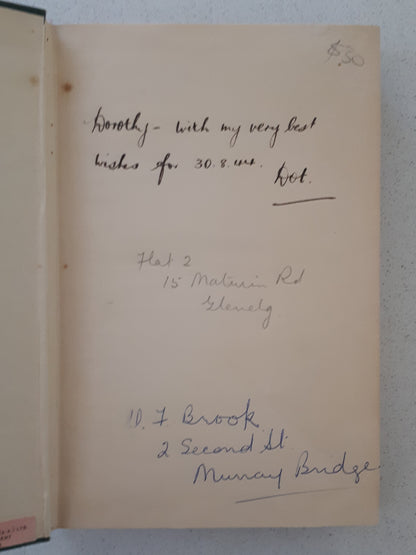 $30
Dorothy - with my very best
wishes for 30.8.
Dot.
Flat 2
15 Maturin Rd
Glenelg
D. F Brook
2 Second St
Murray Bridge